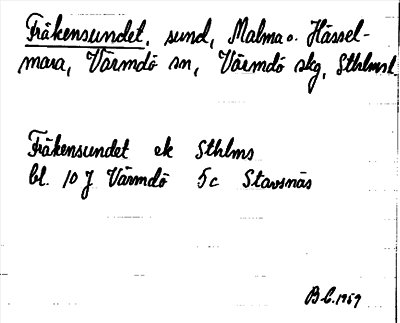 Fräkensundet, sund, Malma o. Hässel-
mara, Värmdö sn, Värmdö skg, Sthlmsl.
Fräkensundet ek Sthlms
bl. 10 J Värmdö 5c Stavsnäs
B C. 1959